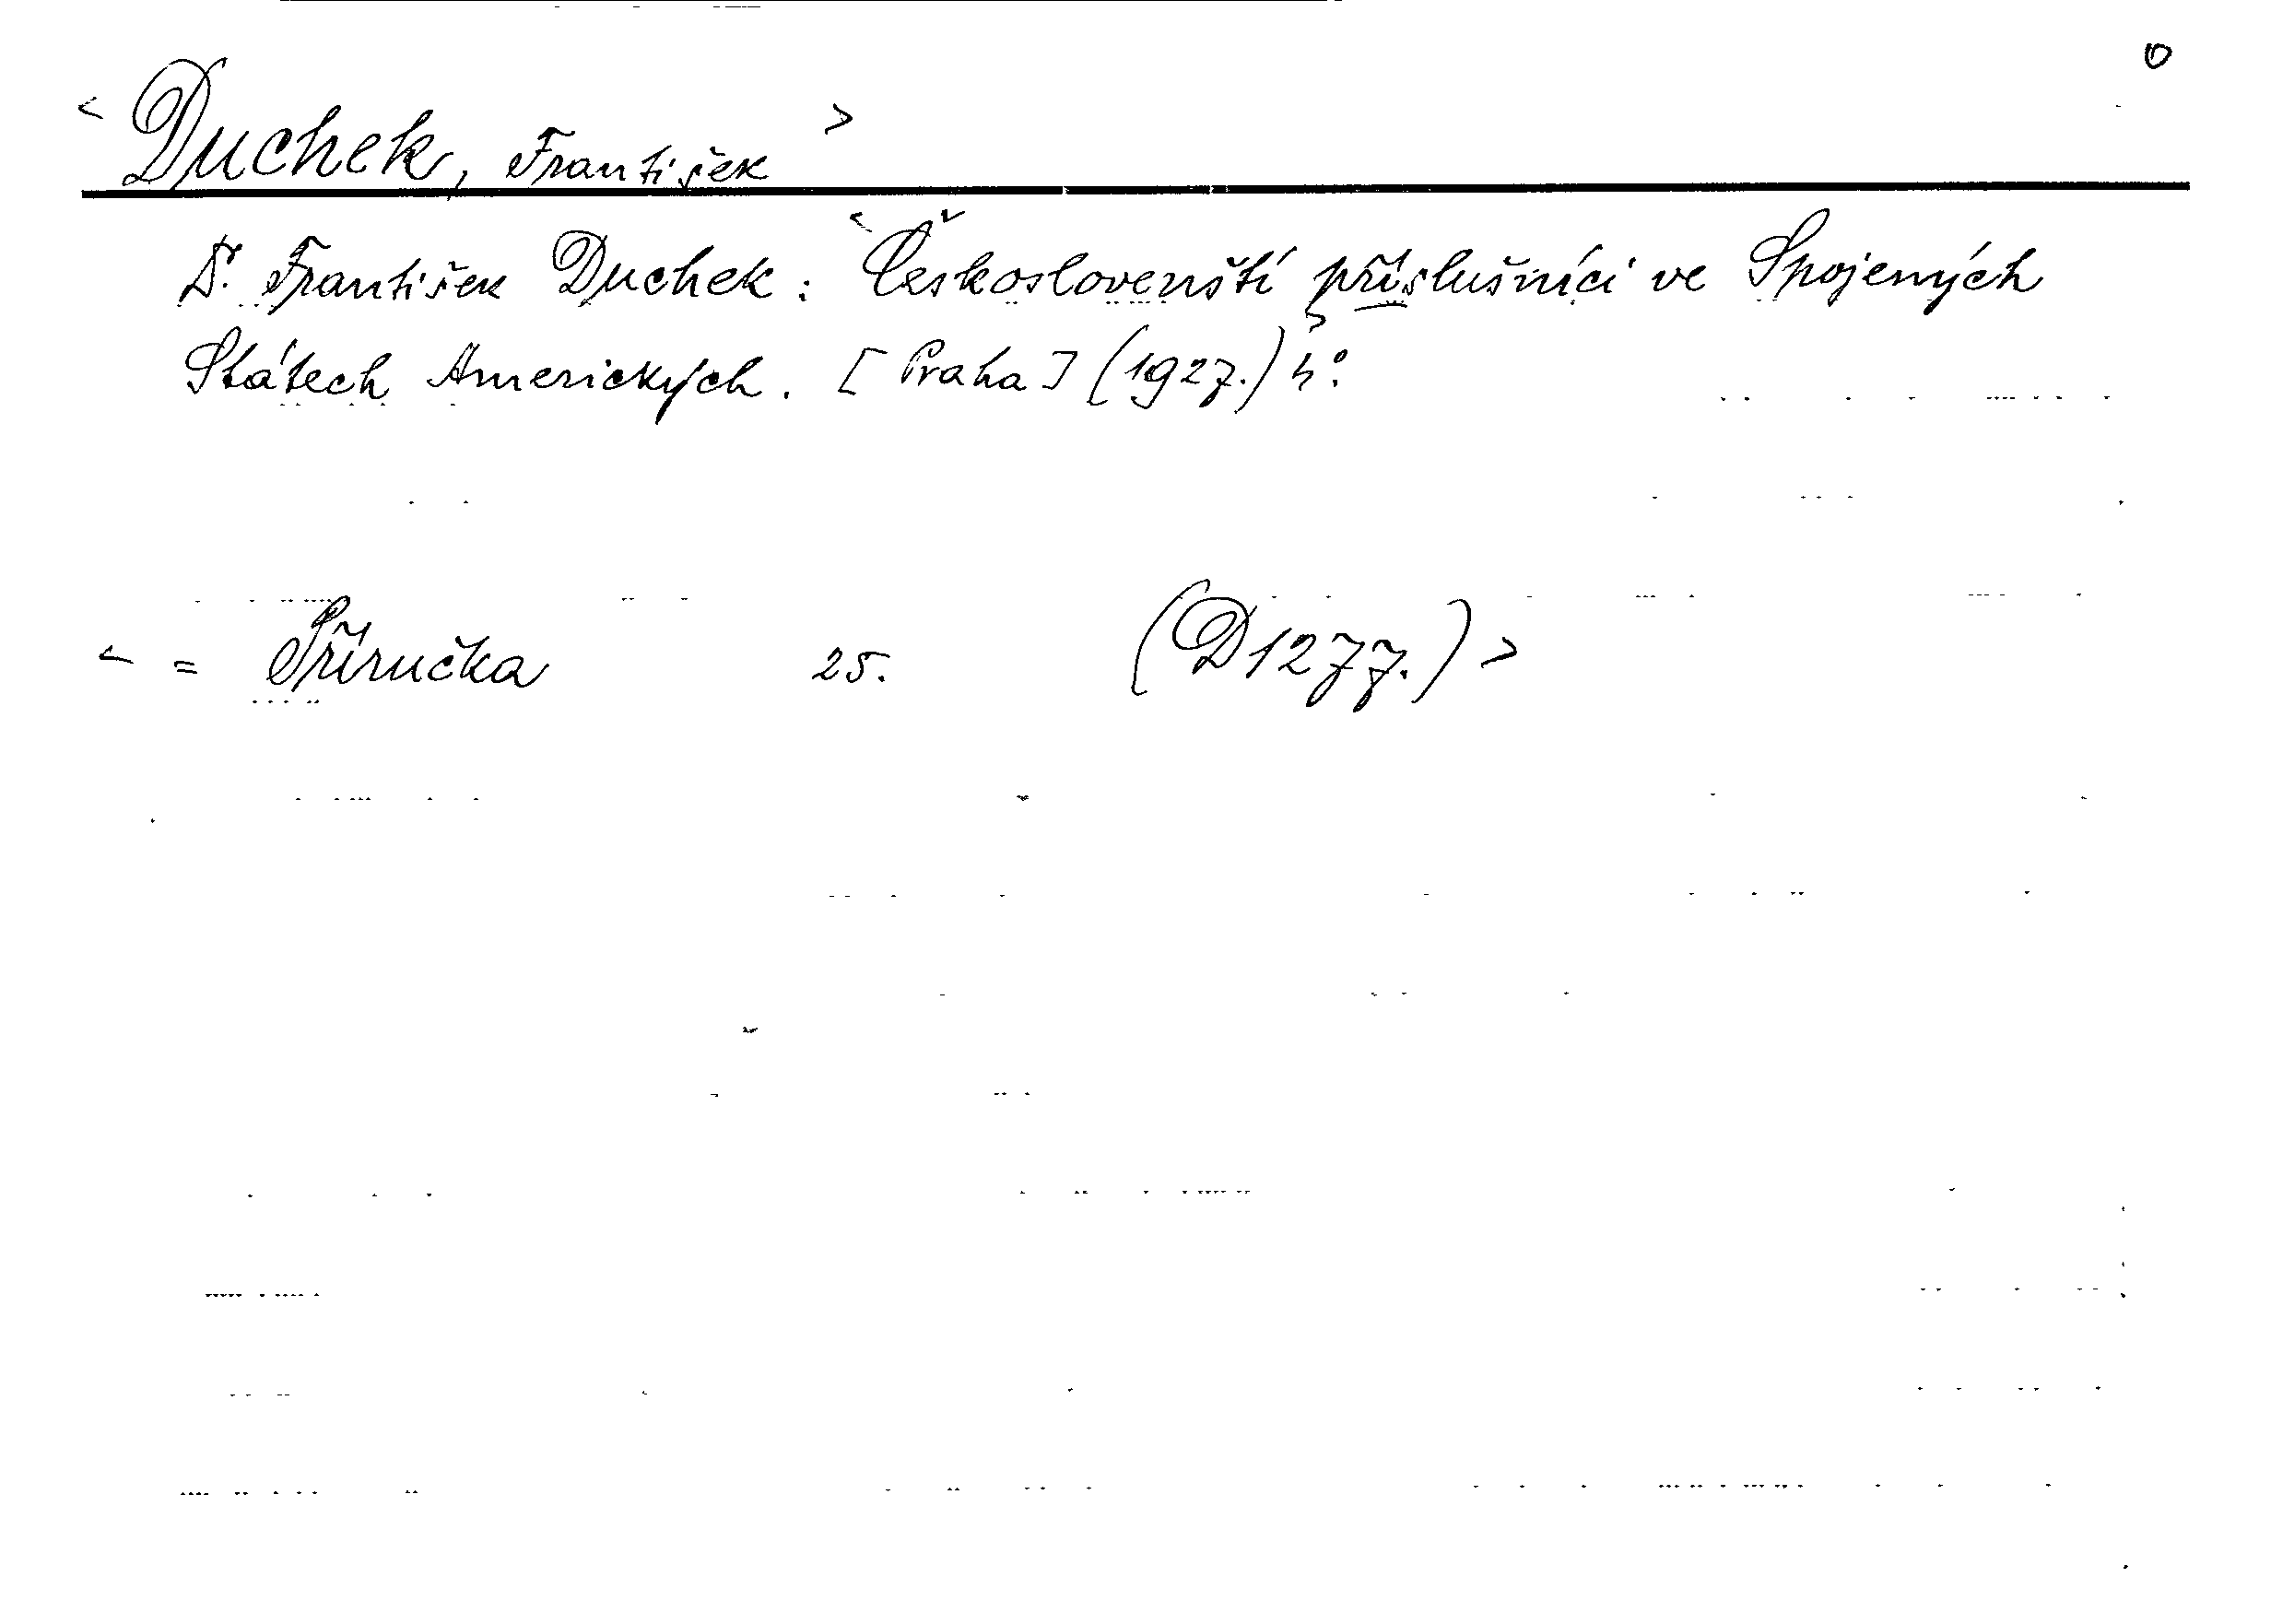 0
< Duchek, František >
Dr. František Duchek: <Českoslovenští příslušníci ve Spojených
Státech Amerických. [Praha] (1927.)> 4°.
< = Příručka 25. (D1277.) >